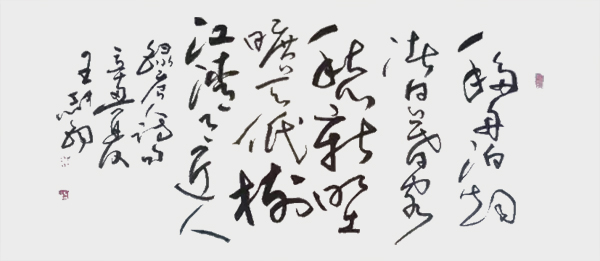 移舟泊烟
渚日暮客
愁新野
曠天低樹
江清月近人
録唐人詩
辛丑夏
王